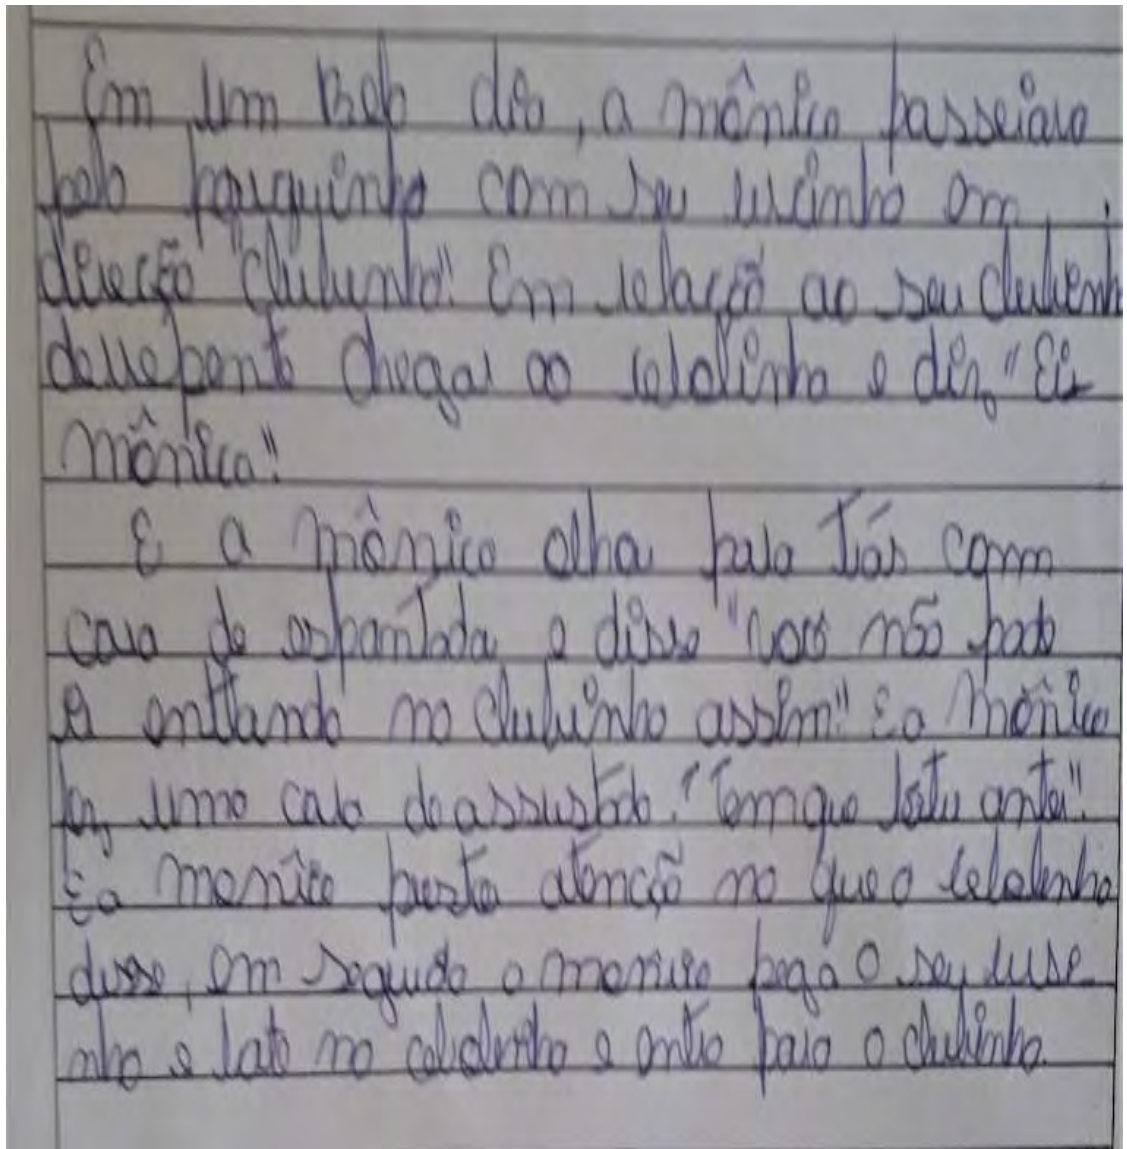 Em um Belo dia, a mônica passeiava
pelo parquinho com seu ursinho em
direção "clubinho". Em relação ao seu clubinh
derrepente chega o cebolinha e diz, "Ei
mônica".
E a mônica olha para trás com
cara de espantada e disse "você não pode
ir entrando no clubinho assim" E a Mônica
fez uma cara de assustada. "Tem que bater antes".
E a monica presta atenção no que o cebolinha
disse, em seguida a monica pega o seu urse
nho e bate no cebolinha e entra para o clubinho.